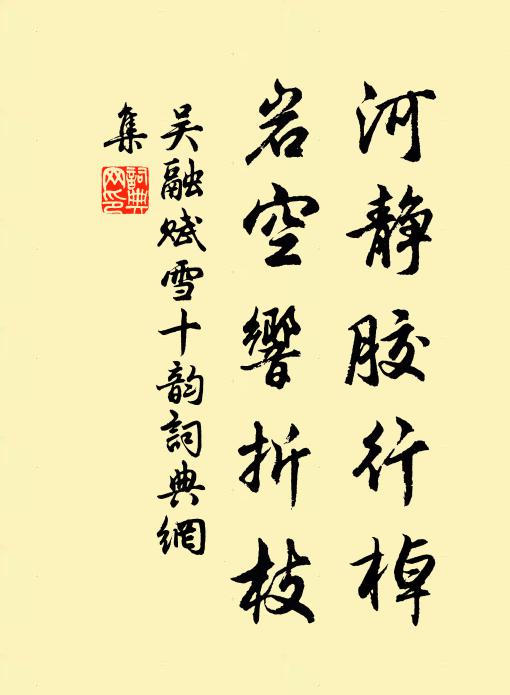 河静胶行棹
岩空響折枝
吴融赋雪十韵詞典網
集
詞典
网印